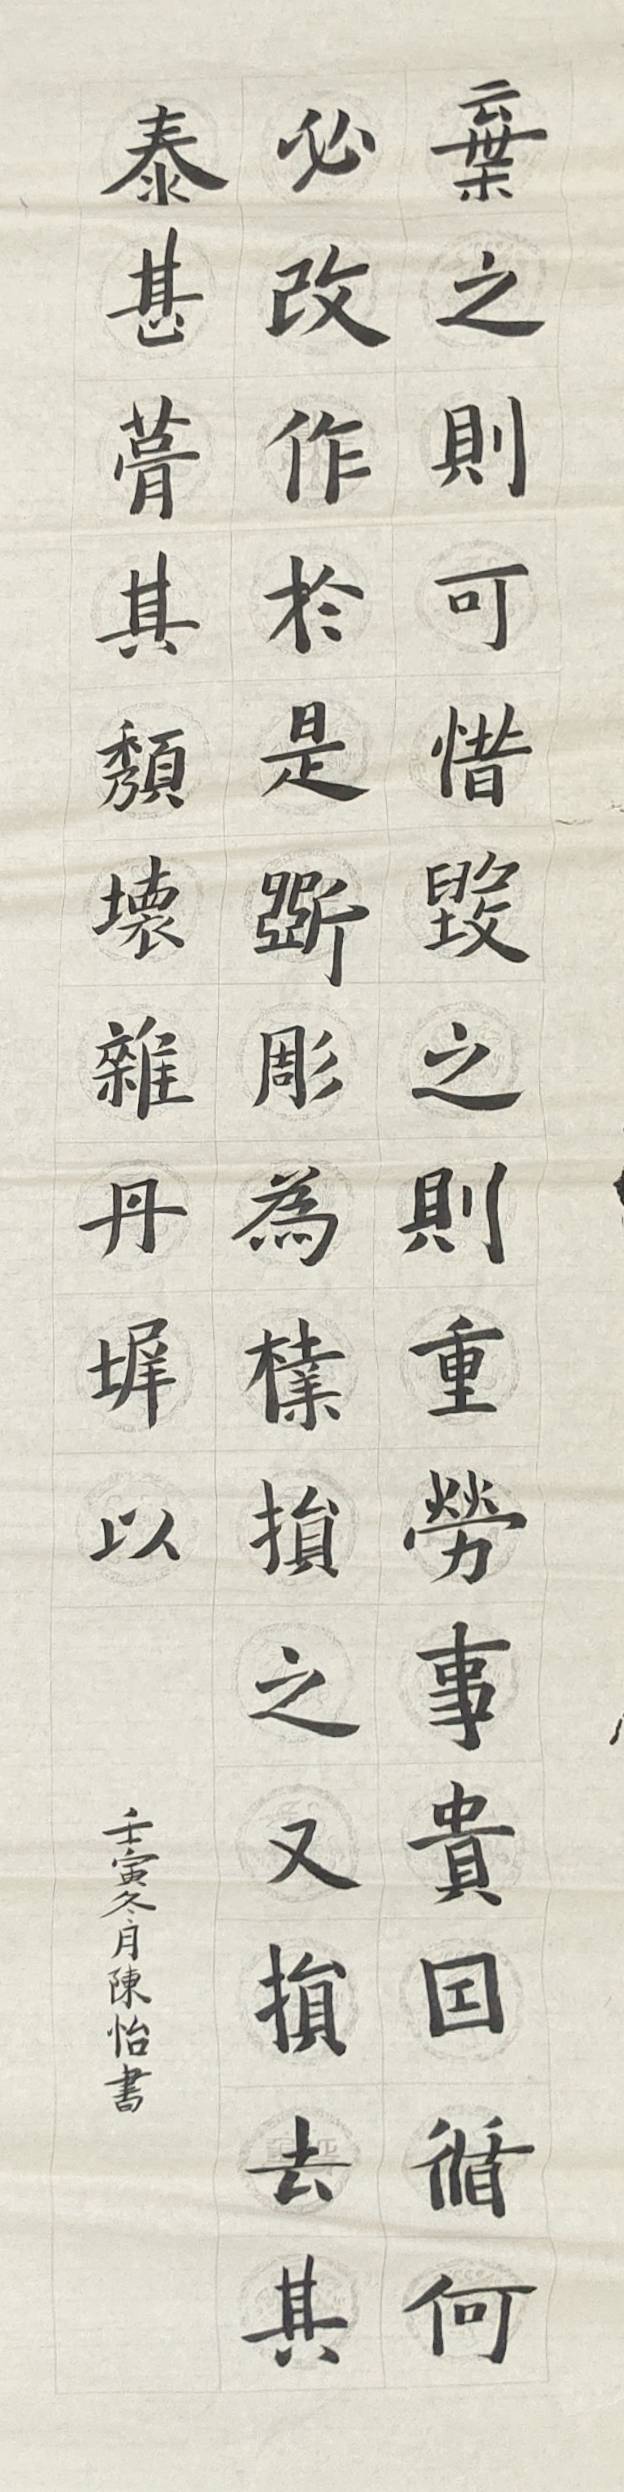 棄之則可惜毀之則重勞事貴因循何
必改作於是斲彫為樸損之又損去其
泰甚葺其頹壞雜丹墀以
壬寅冬月陳怡書